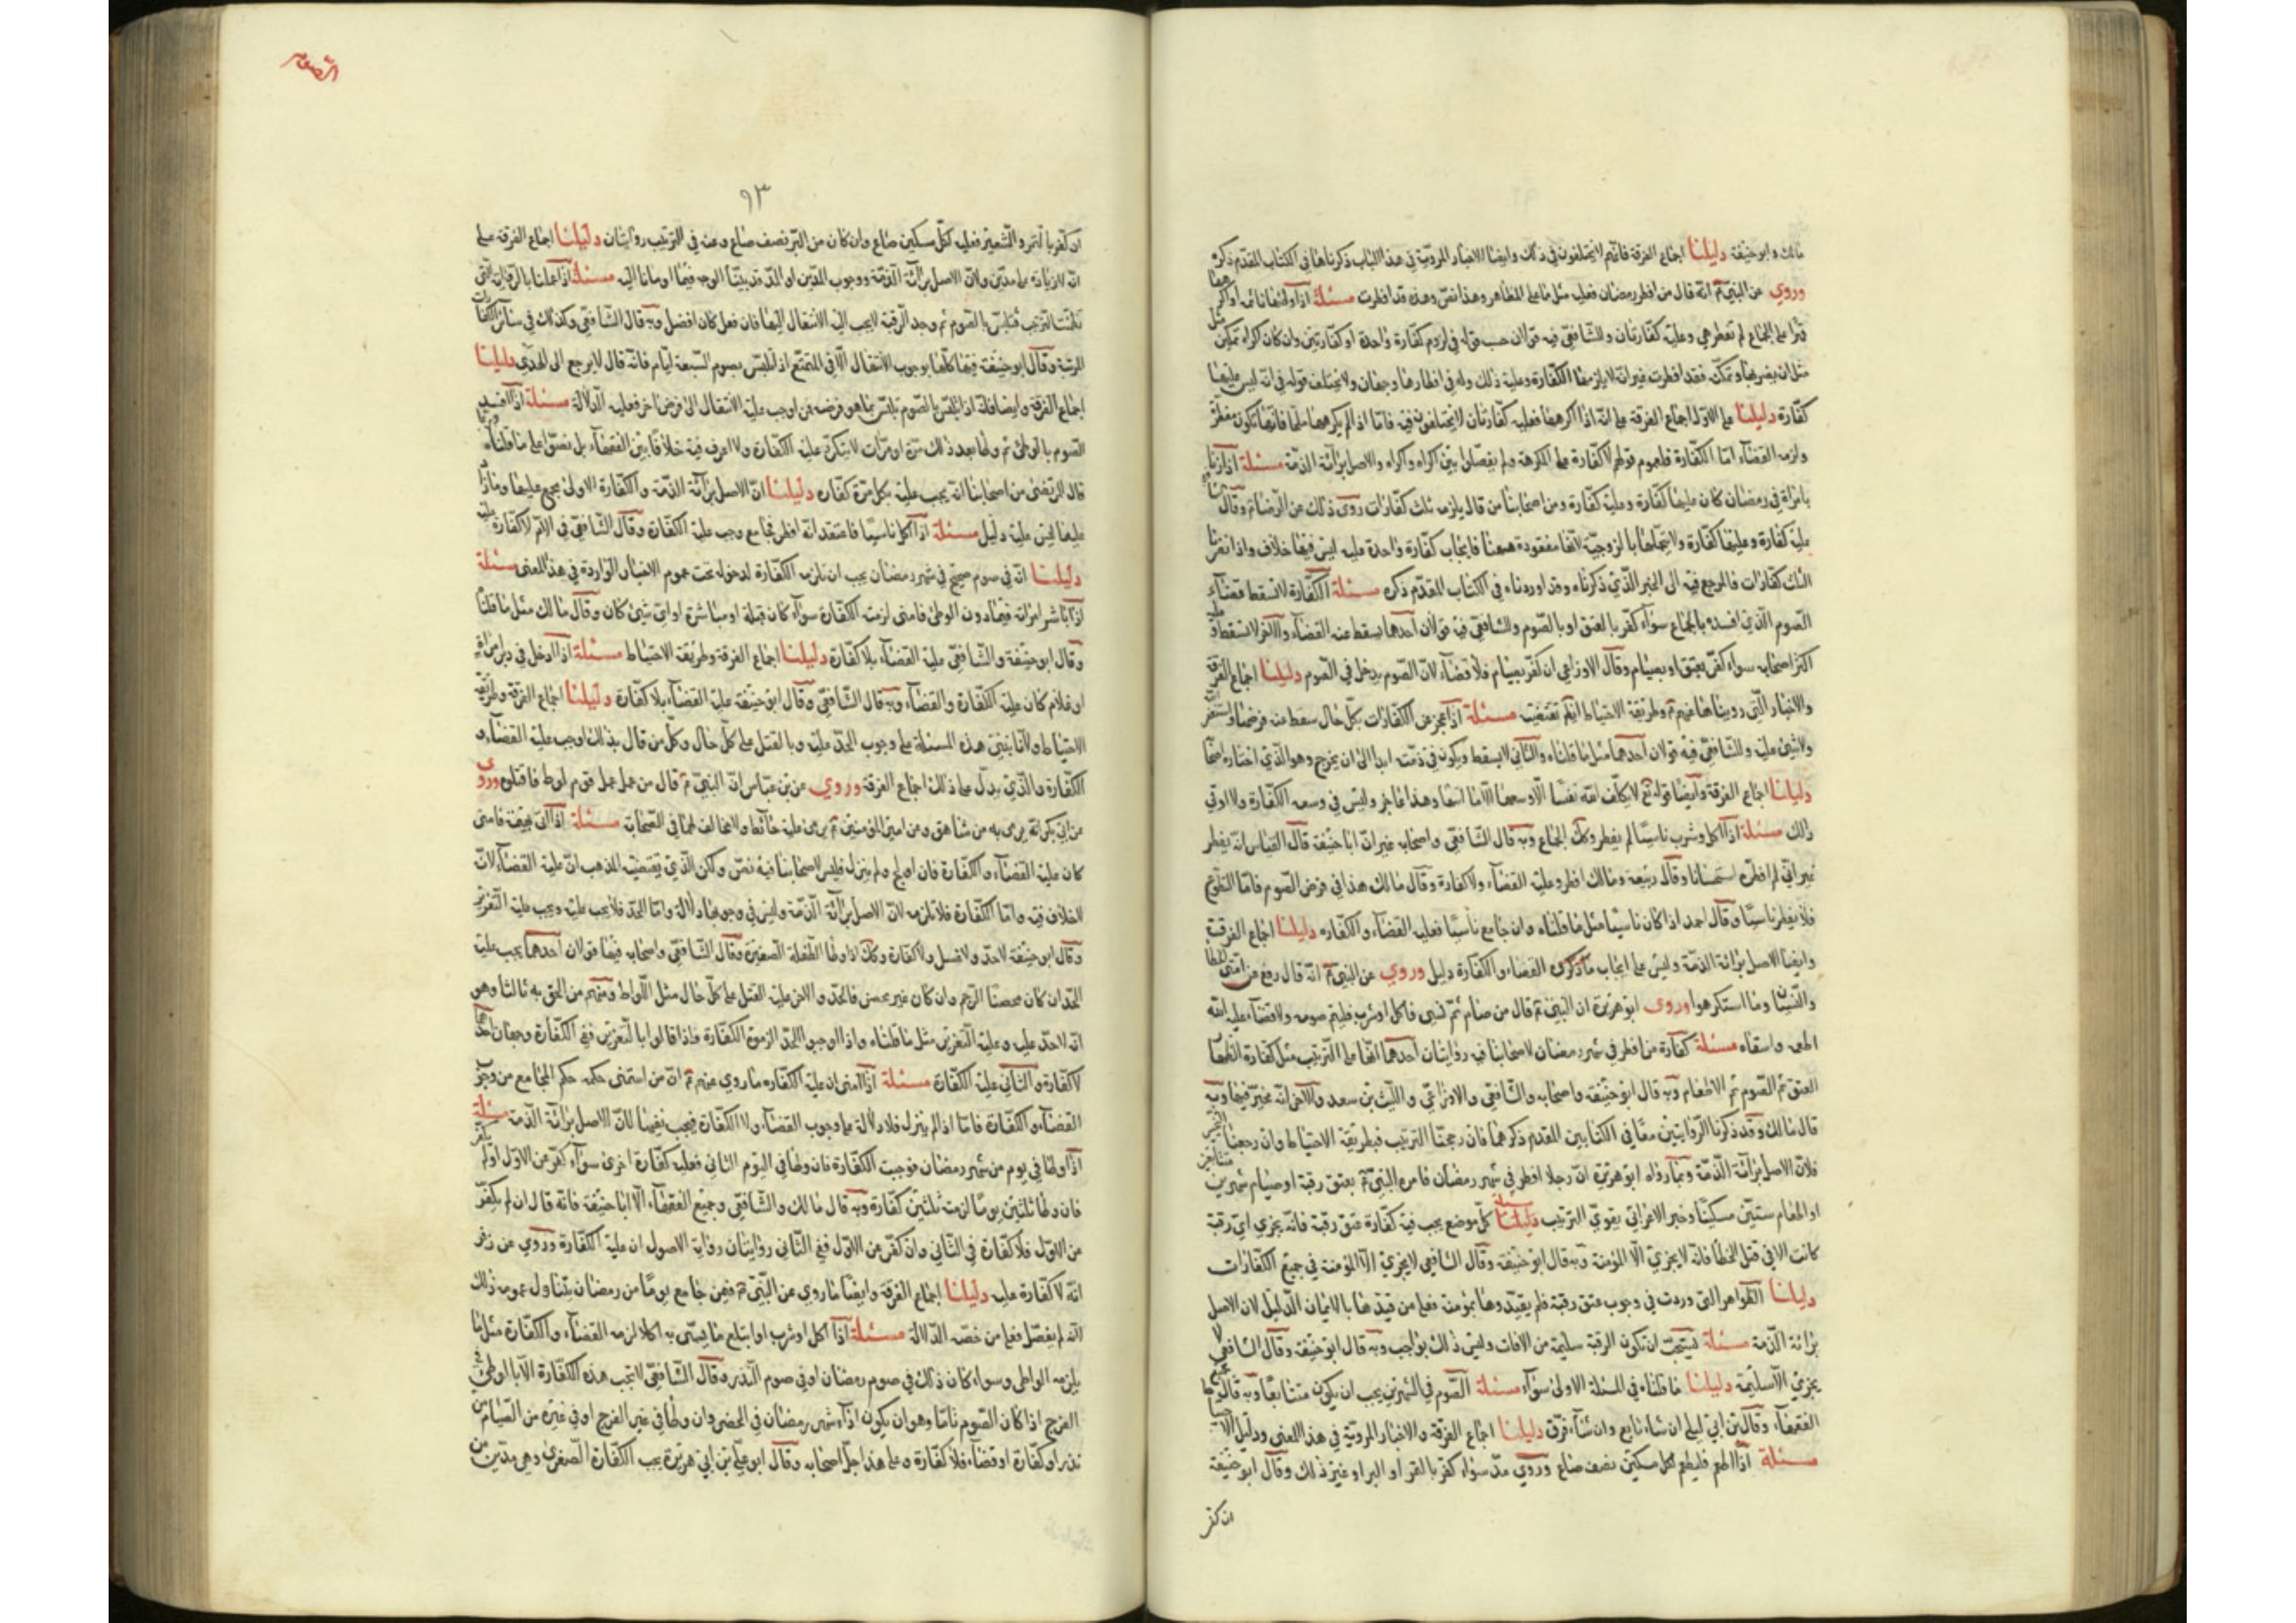 مالك وابو حنيفة دليلنا اجماع الفرقة فانهم لا يختلفون في ذلك وايضا الاخبار المروية في هذا الباب ذكرناها في الكتاب المقدم ذكره
وروي عن النبي انه قال من افطر رمضان فعليه مثل ما على المظاهر وهذا نص وهذه قد افطرت مسئلة اذا وطئها نائمة او اكرهها
قهرا على الجماع لم تفطر هي وعليه كفارتان وللشافعي فيه قولان حسب قوله في لزوم كفارة واحدة او كفارتين وان كان اكراه تمكين
مثل ان يضربها وتمكنه فقد افطرت غير انه لا يلزمها الكفارة وعليه ذلك وله في افطارها وجهان ولا يختلف قوله في انه ليس عليها
كفارة دليلنا على الاول اجماع الفرقة على انه اذا اكرهها فعليه كفارتان لا يختلفون فيه فاما اذا لم يكرهها فانها تكون مفطرة
ولزمه القضاء اما الكفارة فلعموم قولهم لا كفارة على المكرهة ولم يفصلوا بين اكراه واكراه والاصل برائة الذمة مسئلة اذا زنا
بامراة في رمضان كان عليها كفارة وعليه كفارة ومن اصحابنا من قال يلزمه ثلث كفارات روى ذلك عن الرضا وقال
عليه كفارة وعليها كفارة ولا يتحملها بالزوجية لانها مفقودة ههنا فايجاب كفارة واحدة عليه ليس فيها خلاف واذا نصرنا
الثلث كفارات فالمرجع فيه الى الخبر الذي ذكرناه وقد اوردناه في الكتاب المقدم ذكره مسئلة الكفارة لا تسقط قضاء
الصوم الذي افسده بالجماع سواء كفر بالعتق او بالصوم وللشافعي فيه قولان احدهما يسقط عنه القضاء والاخر لا تسقط وعليه
اكثر اصحابه سواء كفر بعتق او بصيام وقال الاوزاعي ان كفر بصيام فلا قضاء لان الصوم يدخل في الصوم دليلنا اجماع الفرقة
والاخبار التي رويناها عنهم وطريقة الاحتياط ايضا تقتضيه مسئلة اذا عجز عن الكفارات بكل حال سقط عنه فرضها واستغفر الله
ولا شيء عليه وللشافعي فيه قولان احدهما مثل ما قلناه والثاني لا يسقط ويكون في ذمته ابدا الى ان يخرج وهو الذي اختاره اصحابه
دليلنا اجماع الفرقة وايضا قوله تعالى لا يكلف الله نفسا الا وسعها الا ما اتيها وهذا عاجز وليس في وسعه الكفارة ولا اوتي
ذلك مسئلة اذا اكل وشرب ناسيا لم يفطر وكذلك الجماع وبه قال الشافعي واصحابه غير ان ابا حنيفة قال القياس انه يفطر
غير اني لم افطره استحسانا وقال ربيعة ومالك افطر وعليه القضاء ولا كفارة وقال مالك هذا في فرض الصوم فاما التطوع
فلا يفطر ناسيا وقال احمد اذا كان ناسيا مثل ما قلناه وان جامع ناسيا فعليه القضاء والكفارة دليلنا اجماع الفرقة
وايضا الاصل برائة الذمة وليس على ايجاب ما ذكروه القضاء والكفارة دليل وروي عن النبي انه قال رفع عن امتي الخطا
والنسيان وما استكرهوا وروى ابو هريرة ان النبي قال من صام ثم نسى فاكل او شرب فليتم صومه ولا قضاء عليه الله
اطعمه واسقاه مسئلة كفارة من افطر في شهر رمضان لاصحابنا فيه روايتان احدهما انها على الترتيب مثل كفارة الظهار
العتق ثم الصوم ثم الاطعام وبه قال ابو حنيفة واصحابه والشافعي والاوزاعي والليث بن سعد والاخر انه مخير فيها وبه
قال مالك وقد ذكرنا الروايتين معا في الكتابين المقدم ذكرهما فان رجحنا الترتيب فبطريقة الاحتياط وان رجحنا التخيير
فلان الاصل برائة الذمة وبما رواه ابو هريرة ان رجلا افطر في شهر رمضان فامره النبي بعتق رقبة او صيام شهرين متتابعين
او اطعام ستين مسكينا وخبر الاعرابي يقوي الترتيب مسئلة كل موضع يجب فيه كفارة عتق رقبة فانه يجزي اي رقبة
كانت الا في قتل الخطأ فانه لا يجزي الا المؤمنة وبه قال ابو حنيفة وقال الشافعي لا يجزي الا المؤمنة في جميع الكفارات
دليلنا الظواهر التي وردت في وجوب عتق رقبة فلم يقيدوها بمؤمنة فعلى من قيدها بالايمان الدليل لان الاصل
برائة الذمة مسئلة يستحب ان تكون الرقبة سليمة من الافات وليس ذلك بواجب وبه قال ابو حنيفة وقال الشافعي لا
يجزي الا سليمة دليلنا ما قلناه في المسئلة الاولى سواء مسئلة الصوم في الشهرين يجب ان يكون متتابعا وبه قال جميع
الفقهاء وقال بن ابي ليلى ان شاء تابع وان شاء فرق دليلنا اجماع الفرقة والاخبار المروية في هذا المعنى ودليل الاحتياط
مسئلة اذا اطعم فليطعم لكل مسكين نصف صاع وروي مد سواء كفر بالتمر او البر او غير ذلك وقال ابو حنيفة
ان كفر
الصوم
٩٣
ان كفر بالتمر والشعير فعليه لكل مسكين صاع وان كان من البر نصف صاع وعنه في الزبيب روايتان دليلنا اجماع الفرقة على
انه لا زيادة على مدين ولان الاصل برائة الذمة ووجوب المدين او المد قد بينا الوجه فيها اومأنا اليه مسئلة اذا عملنا بالرواية التي
تضمنت الترتيب فتلبس بالصوم ثم وجد الرقبة لا يجب اليه الانتقال اليها فان فعل كان افضل وبه قال الشافعي وكذلك في سائر الكفارات
المرتبة وقال ابو حنيفة فيها كلها بوجوب الانتقال الا في المتمتع اذا تلبس بصوم السبعة ايام فانه قال لا يرجع الى الهدي دليلنا
اجماع الفرقة وايضا فانه اذا تلبس بالصوم تلبس بما هو فرضه فمن اوجب عليه الانتقال الى فرض اخر فعليه الدلالة مسئلة اذا افسد
الصوم بالوطئ ثم وطئ بعد ذلك مرة او مرات لا يتكرر عليه الكفارة ولا اعرف فيه خلافا بين الفقهاء بل نصوا على ما قلناه
قال المرتضى من اصحابنا انه يجب عليه بكل مرة كفارة دليلنا ان الاصل برائة الذمة والكفارة الاولى مجمع عليها وما زاد
عليها ليس عليه دليل مسئلة اذا اكل ناسيا فاعتقد انه افطر فجامع وجب عليه الكفارة وقال الشافعي في الام لا كفارة عليه
دليلنا انه في صوم صحيح في شهر رمضان يجب ان تلزمه الكفارة لدخوله تحت عموم الاخبار الواردة في هذا المعنى مسئلة
اذا باشر امراته فيما دون الوطئ فامنى لزمته الكفارة سواء كان قبلة او مباشرة او اي شيء كان وقال مالك مثل ما قلنا
وقال ابو حنيفة والشافعي عليه القضاء بلا كفارة دليلنا اجماع الفرقة وطريقة الاحتياط مسئلة اذا ادخل في دبر امراة
او غلام كان عليه الكفارة والقضاء وبه قال الشافعي وقال ابو حنيفة عليه القضاء بلا كفارة دليلنا اجماع الفرقة وطريقة
الاحتياط ولانا نبني هذه المسئلة على وجوب الحد عليه وبالقتل على كل حال وكل من قال بذلك اوجب عليه القضاء و
الكفارة والذي يدل على ذلك اجماع الفرقة وروي عن بن عباس ان النبي قال من عمل عمل قوم لوط فاقتلوه وروى
عن ابي بكر انه يرمى به من شاهق وعن امير المؤمنين يرمى عليه حائط ولا مخالف لهما في الصحابة مسئلة اذا اتى بهيمة فامنى
كان عليه القضاء والكفارة فان اولج ولم ينزل فليس لاصحابنا فيه نص ولكن الذي يقتضيه المذهب ان عليه القضاء لانه
لا خلاف فيه واما الكفارة فلا تلزمه لان الاصل برائة الذمة وليس في وجوبها دلالة واما الحد فلا يجب عليه ويجب عليه التعزير
وقال ابو حنيفة لا حد ولا غسل ولا كفارة وكذلك اذا وطئ الطفلة الصغيرة وقال الشافعي واصحابه فيها قولان احدهما يجب عليه
الحد ان كان محصنا الرجم وان كان غير محصن فالحد والاخر عليه القتل على كل حال مثل اللواط ومنهم من الحق به ثالثا وهو
انه لا حد عليه وعليه التعزير مثل ما قلناه واذا اوجبوا الحد الزموه الكفارة واذا قالوا بالتعزير ففي الكفارة وجهان احدهما
لا كفارة والثاني عليه الكفارة مسئلة اذا امنى ان عليه الكفارة ما روي عنهم ان من استمنى حكمه حكم المجامع من وجوب
القضاء والكفارة فاما اذا لم ينزل فلا دلالة على وجوب القضاء ولا الكفارة فيجب نفيها لان الاصل برائة الذمة مسئلة
اذا وطئ في يوم من شهر رمضان فوجبت الكفارة فان وطئ في اليوم الثاني فعليه كفارة اخرى سواء كفر عن الاول او لم يكفر
فان وطئ ثلثين يوما لزمته ثلثين كفارة وبه قال مالك والشافعي وجميع الفقهاء الا ابا حنيفة فانه قال ان لم يكفر
عن الاول فلا كفارة في الثاني وان كفر عن الاول ففي الثاني روايتان رواية الاصول ان عليه الكفارة وروي عن زفر
انه لا كفارة عليه دليلنا اجماع الفرقة وايضا ما روي عن النبي فيمن جامع يوما من رمضان يتناول عمومه ذلك
لانه لم يفصل فعلى من خصه الدلالة مسئلة اذا اكل او شرب او ابتلع ما يسمى به اكلا لزمه القضاء والكفارة مثل ما
يلزمه الواطي وسواء كان ذلك في صوم رمضان او في صوم النذر وقال الشافعي لا تجب هذه الكفارة الا بالوطئ في
الفرج اذا كان الصوم تاما وهو ان يكون اداء شهر رمضان في الحضر وان وطئ في غير الفرج او في غيره من الصيام من
نذر او كفارة او قضاء فلا كفارة وعلى هذا جل اصحابه وقال ابو علي بن ابي هريرة يجب الكفارة الصغرى وهي مد من